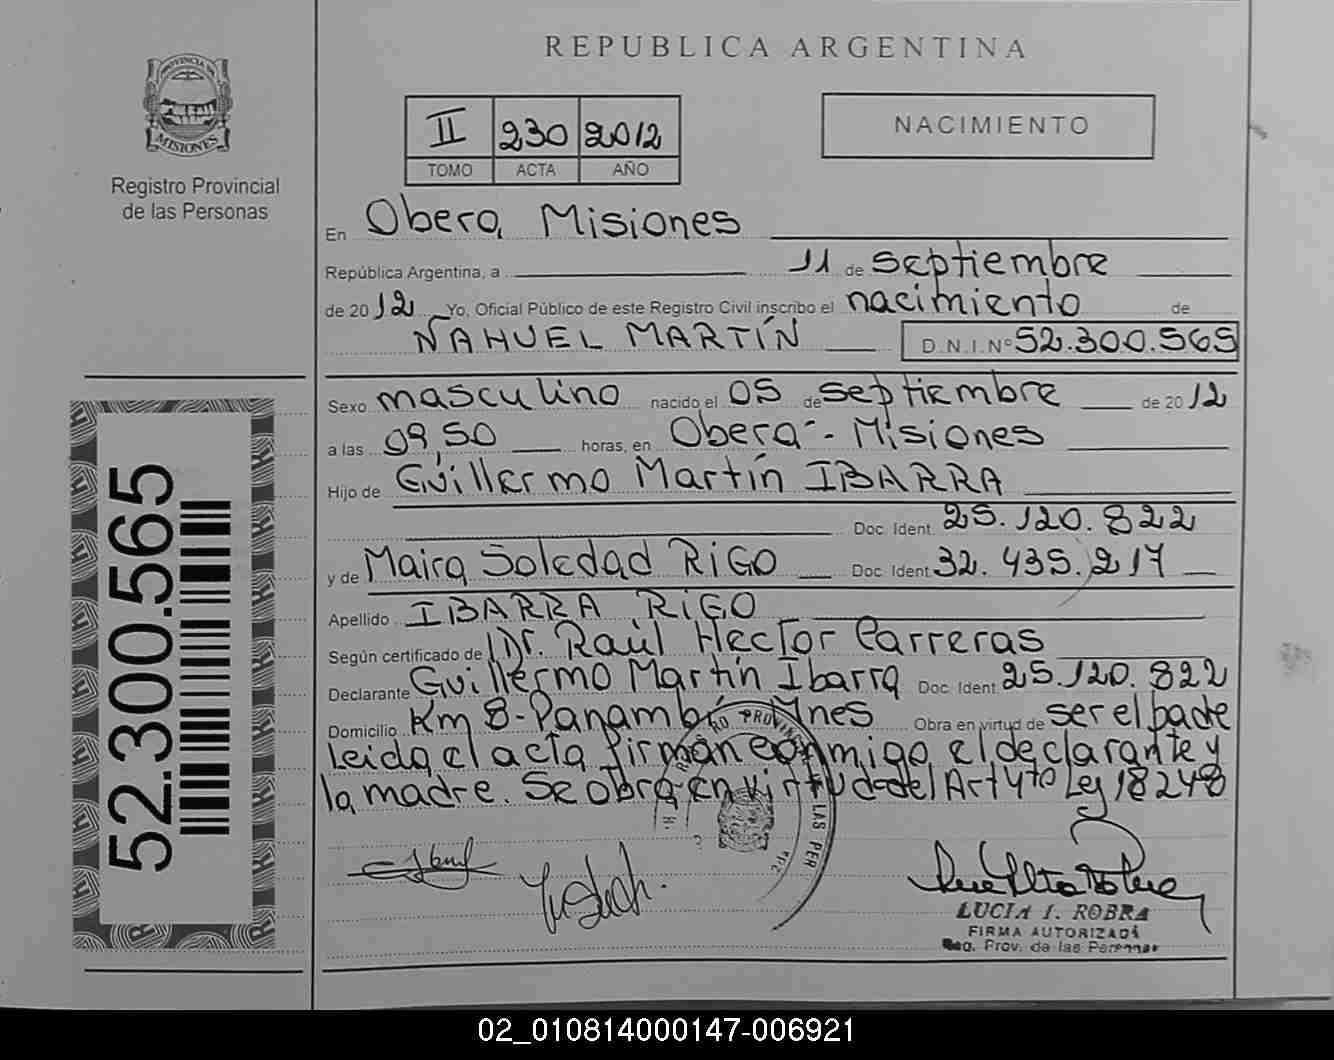 PROVINCIA DE
MISIONES
Registro Provincial
de las Personas
52.300.565
REPUBLICA ARGENTINA
II 230 2012
TOMO ACTA AÑO
NACIMIENTO
En Obera, Misiones
República Argentina, a 11 de septiembre
de 2012 Yo, Oficial Público de este Registro Civil inscribo el nacimiento de
NAHUEL MARTÍN D.N.I.Nº 52.300.565
Sexo masculino nacido el 05 de septiembre de 2012
a las 09,50 horas, en Oberá - Misiones
Hijo de Guillermo Martín IBARRA
Doc. Ident. 25.120.822
y de Maira Soledad RIGO Doc. Ident. 32.435.217
Apellido IBARRA RIGO
Según certificado de Dr. Raúl Hector Carreras
Declarante Guillermo Martín Ibarra Doc. Ident. 25.120.822
Domicilio Km 8-Panambí Mnes Obra en virtud de ser el padre
Leida el acta firman conmigo el declarante y
la madre. Se obra en virtud del Art 4to Ley 18248
LUCIA I. ROBRA
FIRMA AUTORIZADA
Reg. Prov. de las Personas
02_010814000147-006921